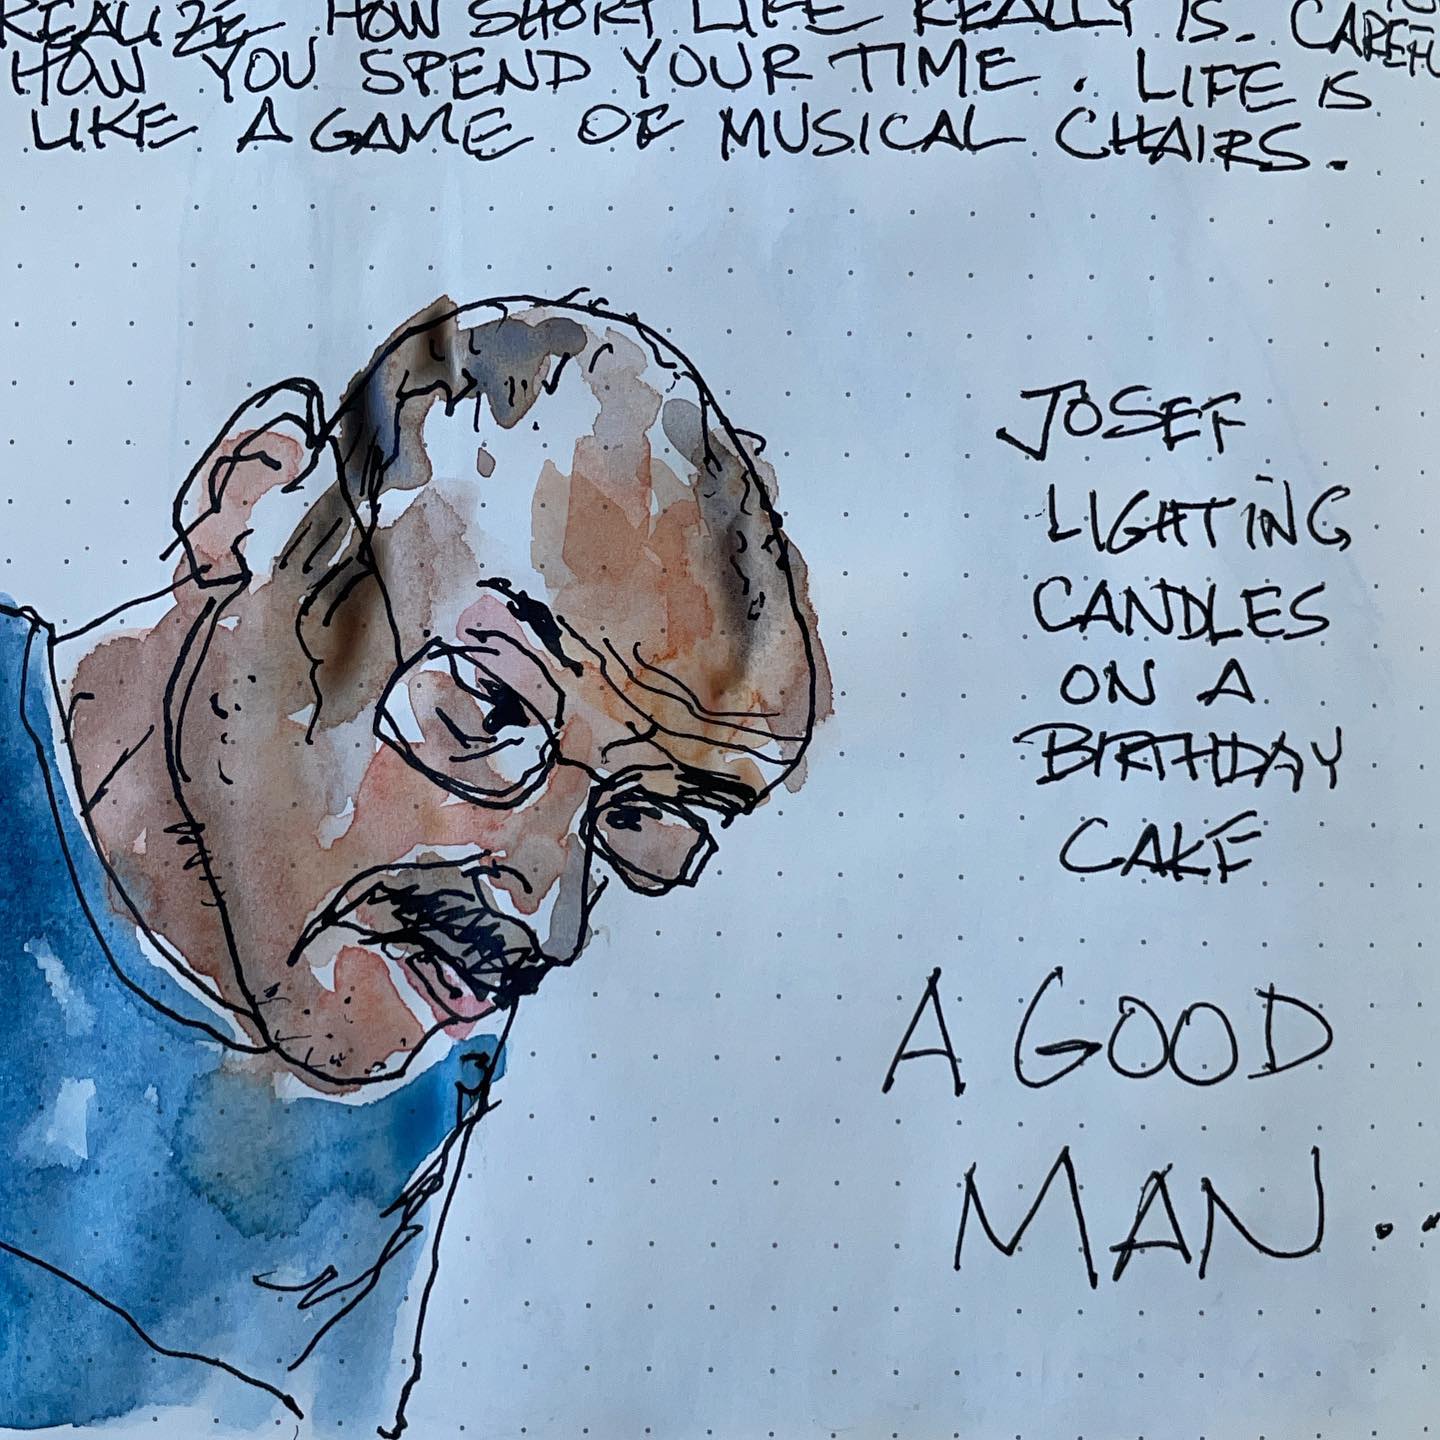 REALIZE HOW SHORT LIFE REALLY IS. CAREFU
HOW YOU SPEND YOUR TIME. LIFE IS
LIKE A GAME OF MUSICAL CHAIRS.
JOSEF
LIGHTING
CANDLES
ON A
BIRTHDAY
CAKE
A GOOD
MAN..